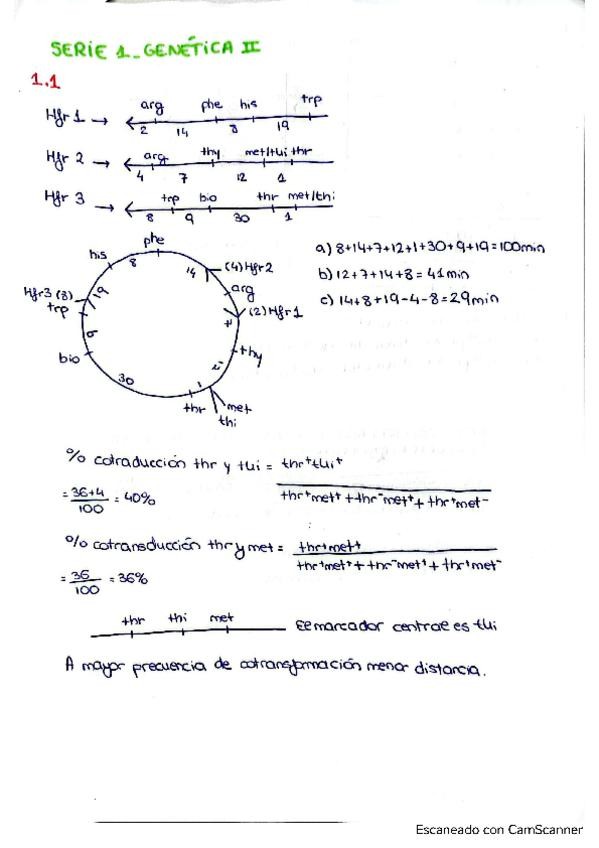 SERIE 1_GENÉTICA II
1.1
Hfr 1 → arg phe his trp
2 14 8 19
Hfr 2 → arg thy met/tui thr
4 7 12 1
Hfr 3 → trp bio thr met/thi
8 9 30 1
phe
his 8 14 (4)Hfr2
arg
Hfr3 (8) 19 (2)Hfr1
trp 7
9 thy
bio 12
30 1
thr met
thi
a) 8+14+7+12+1+30+9+19=100min
b) 12+7+14+8=41min
c) 14+8+19-4-8=29min
% cotraducción thr y tui = thr+tui+
= 36+4 = 40% thr+met+ + thr-met+ + thr+met-
100
% cotransducción thr y met = thr+met+
= 36 = 36% thr+met+ + thr-met+ + thr+met-
100
thr thi met
El marcador central es tui
A mayor frecuencia de cotransformación menor distancia.
Escaneado con CamScanner